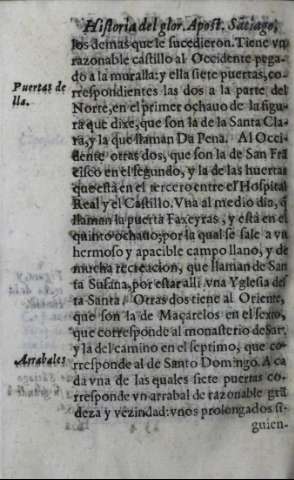 Historia del glor. Apost. Sātiago,
los demas que le sucedieron. Tiene vn
razonable castillo al Occidente pega-
do a la muralla: y ella siete puertas, co-
Puertas de
lla.
rrespondientes las dos a la parte del
Norte, en el primer ochauo de la figu
ra que dixe, que son la de la Santa Cla
ra, y la que llaman Da Pena. Al Occi-
dente otras dos, que son la de San Frā
cisco en el segundo, y la de las huertas
que está en el tercero entre el Hospital
Real y el Castillo. Vna al medio dia, q̄
llaman la puerta Faxeyras, y està en el
quinto ochauo; por la qual se sale a vn
hermoso y apacible campo llano, y de
mucha recreacion, que llaman de San
ta Susana, por estar alli vna Yglesia des
ta Santa. Otras dos tiene al Oriente,
que son la de Maçarelos en el sexto,
que corresponde al monasterio de Sar,
y la del camino en el septimo, que co-
Arrabales
rresponde al de Santo Domingo. A ca
da vna de las quales siete puertas co-
rresponde vn arrabal de razonable grā
deza y vezindad: vnos prolongados si-
guien-